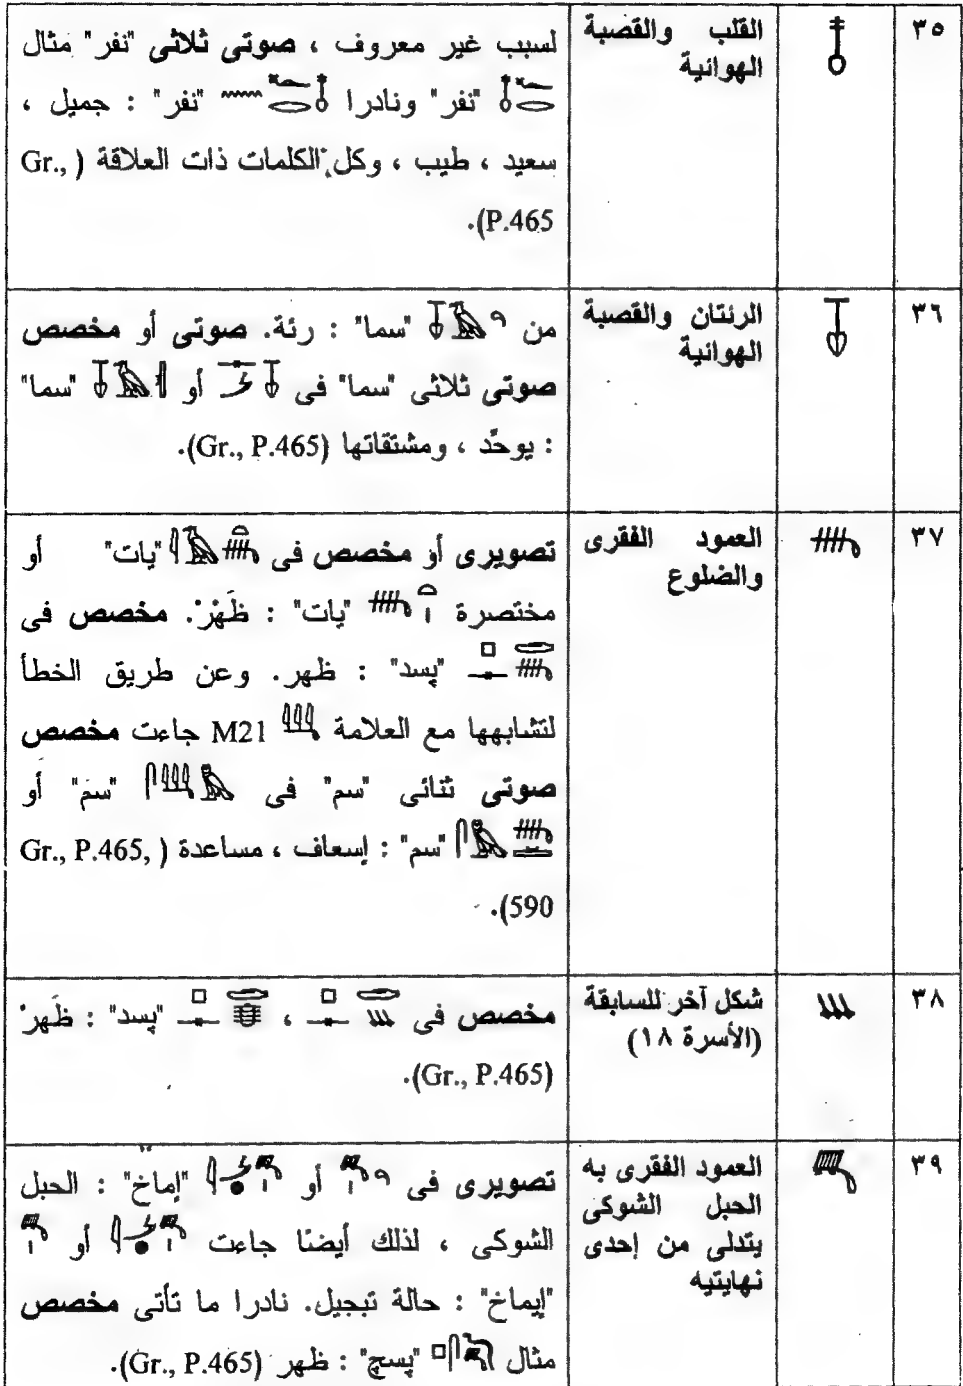 ٣٥
القلب والقصبة
الهوائية
لسبب غير معروف ، صوتى ثلاثى "نفر" مثال
"نفر" ونادرا "نفر" : جميل ،
سعيد ، طيب ، وكل الكلمات ذات العلاقة (Gr.,
P.465).
٣٦
الرئتان والقصبة
الهوائية
من "سما" : رئة. صوتى أو مخصص
صوتى ثلاثى "سما" فى أو "سما"
: يوحَّد ، ومشتقاتها (Gr., P.465).
٣٧
العمود الفقرى
والضلوع
تصويرى أو مخصص فى "يات" أو
مختصرة "يات" : ظَهْرْ. مخصص فى
"پسد" : ظهر. وعن طريق الخطأ
لتشابهها مع العلامة M21 جاءت مخصص
صوتى ثنائى "سم" فى "سم" أو
"سم" : إسعاف ، مساعدة (Gr., P.465,
590).
٣٨
شكل آخر للسابقة
(الأسرة ١٨)
مخصص فى ، "پسد" : ظَهرْ
(Gr., P.465).
٣٩
العمود الفقرى به
الحبل الشوكى
يتدلى من إحدى
نهايتيه
تصويرى فى أو "إماخ" : الحبل
الشوكى ، لذلك أيضًا جاءت أو
"إيماخ" : حالة تبجيل. نادرا ما تأتى مخصص
مثال "پسچ" : ظهر (Gr., P.465).